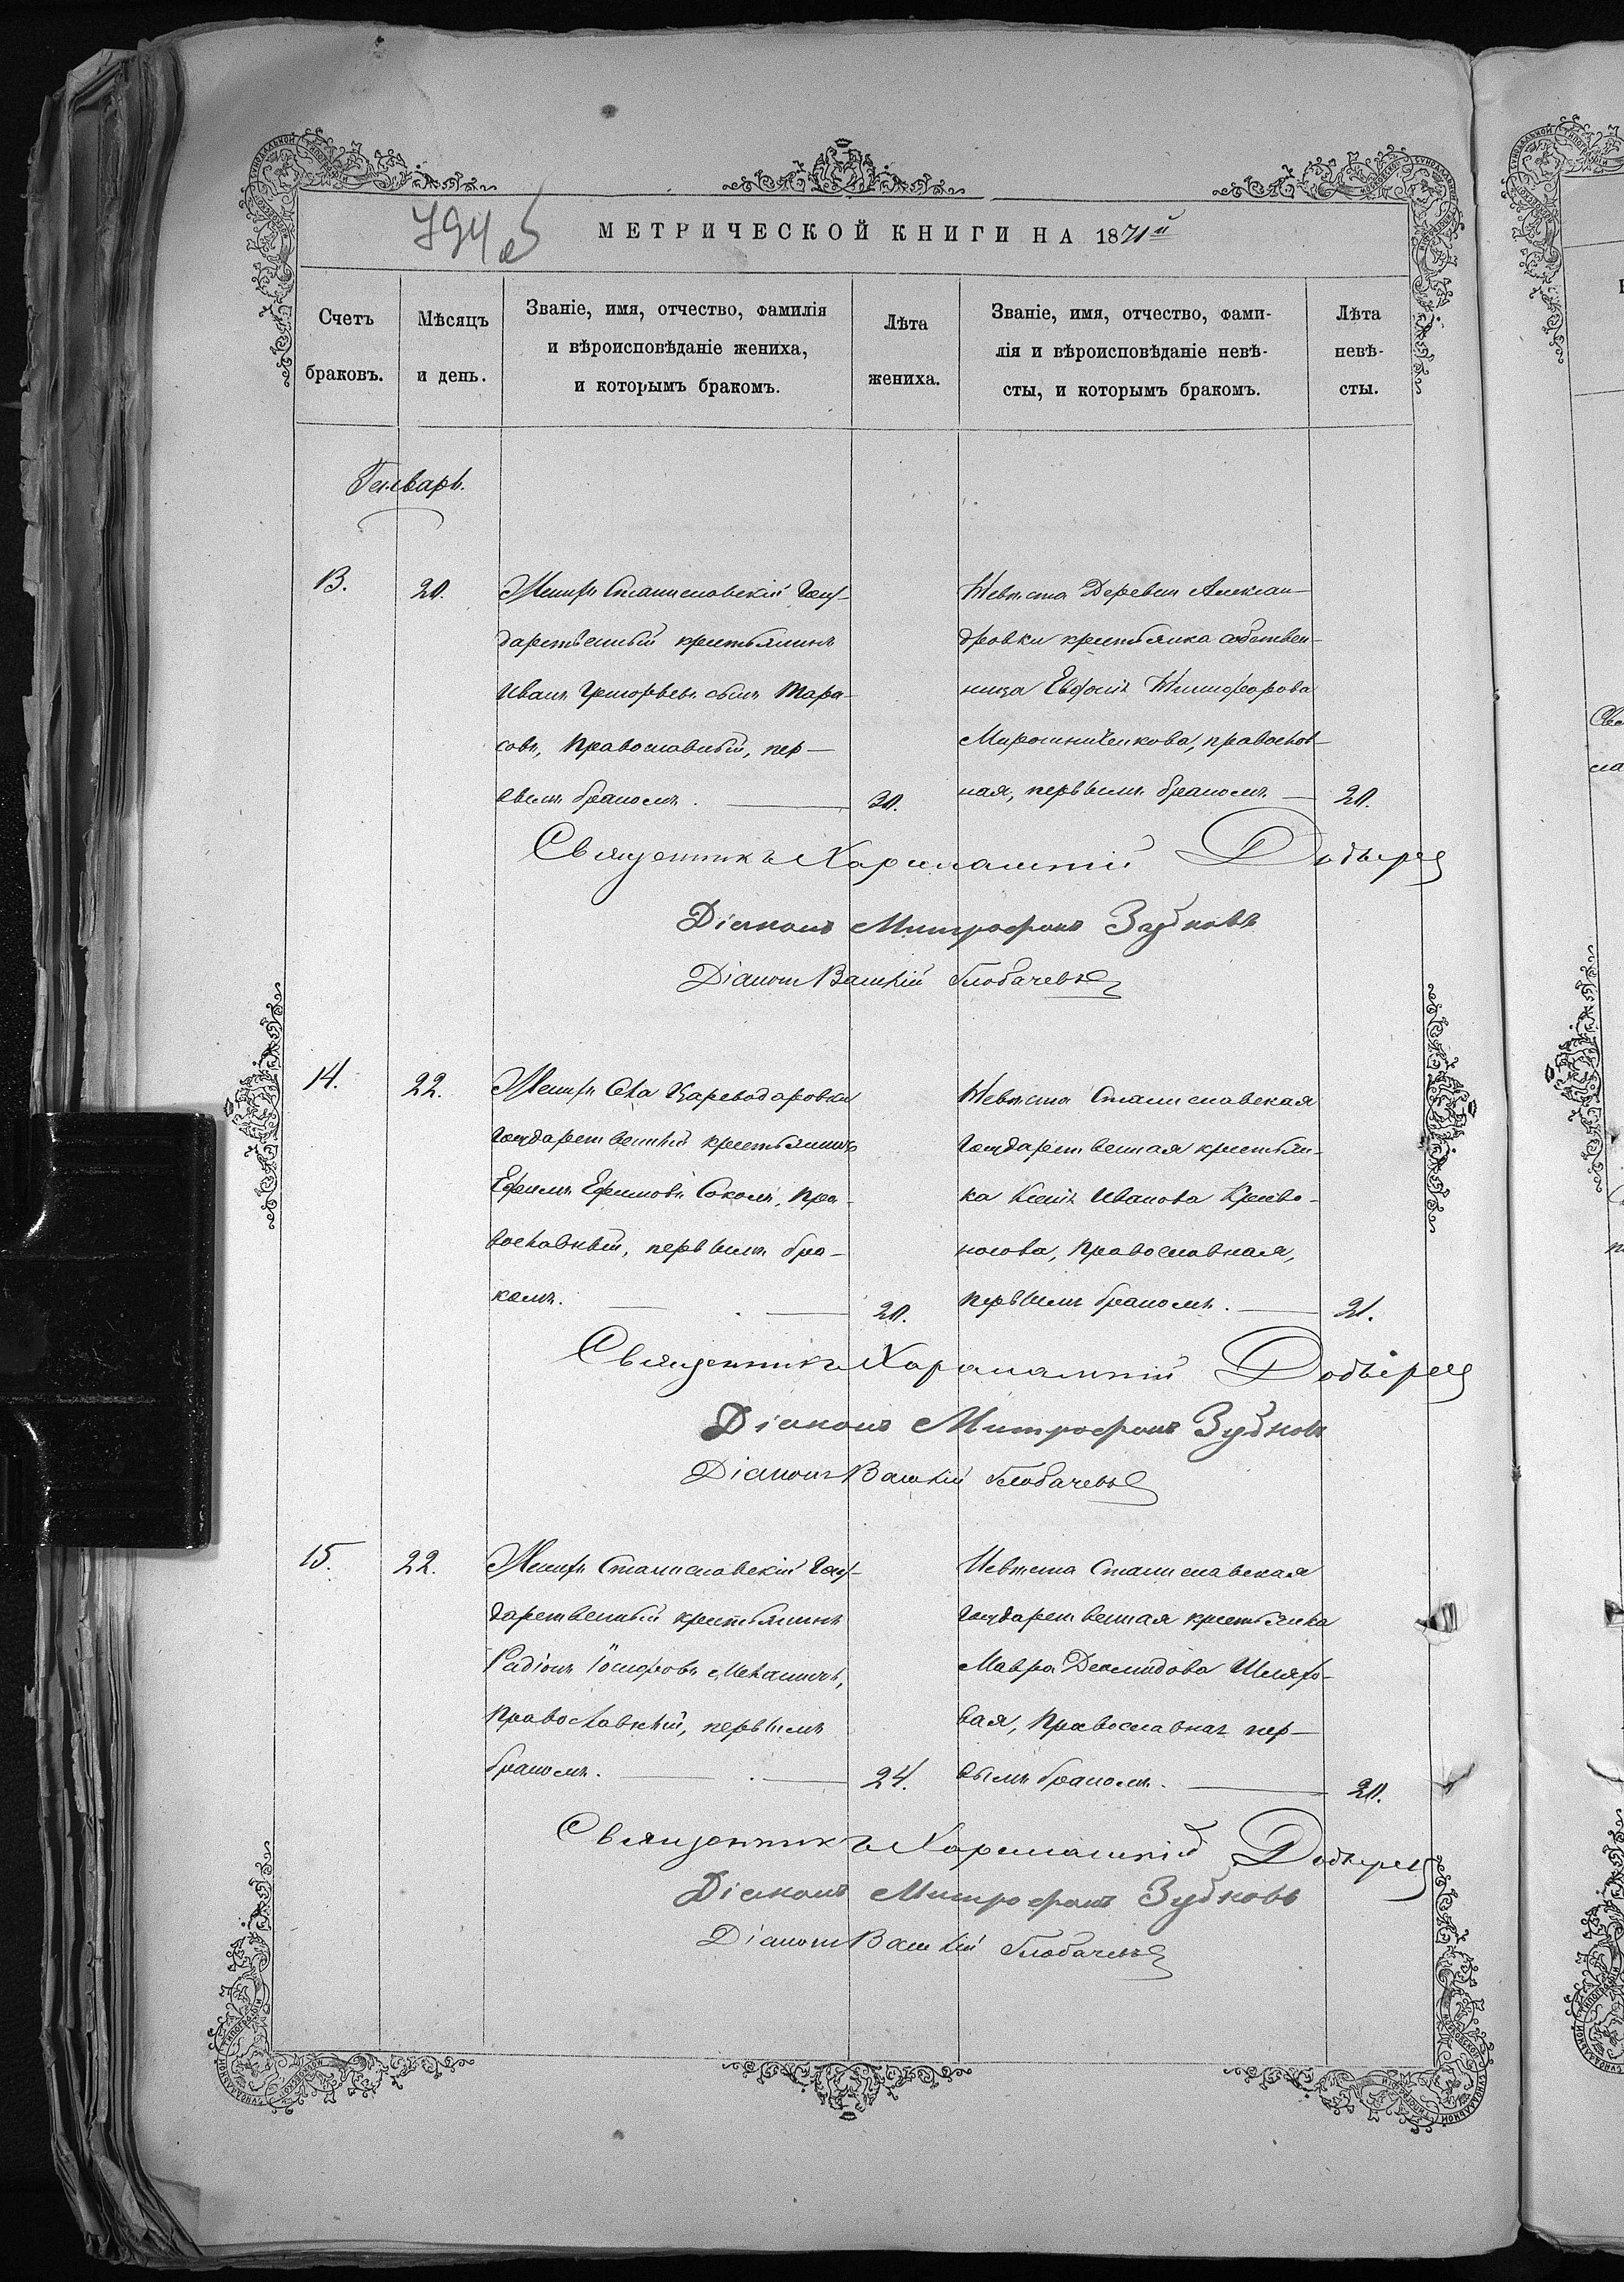 794 об
МЕТРИЧЕСКОЙ КНИГИ НА 1871й
Счетъ браковъ.
Мѣсяцъ и день.
Званіе, имя, отчество, фамилія
и вѣроисповѣданіе жениха,
и которымъ бракомъ.
Лѣта жениха.
Званіе, имя, отчество, фами-
лія и вѣроисповѣданіе невѣ-
сты, и которымъ бракомъ.
Лѣта невѣ-
сты.
Генварь.
13.
20.
Женихъ Станиславскій Госу-
дарственный крестьянинъ
Иванъ Григорьевъ сынъ Тара-
совъ, Православный, пер-
вымъ бракомъ.
20.
Невѣста Деревни Алексан-
дровки крестьянка собствен-
ница Евфосія Никифорова
Мирошниченкова, православ-
ная, первымъ бракомъ
20.
Священникъ Харлампій
Діаконъ Митрофанъ Зубковъ
Діаконъ Глобачевъ
14.
22.
Женихъ Села Цареводаровки
Государственный крестьянинъ
Ефимъ Ефимовъ Соколъ, Пра-
вославный, первымъ бра-
комъ.
20.
Невѣста Станиславская
Государственная крестьян-
ка Ксенія Иванова Криво-
носова, Православная,
первымъ бракомъ.
21.
Священникъ Харлампій
Діаконъ Митрофанъ Зубковъ
Діаконъ Глобачевъ
15.
22.
Женихъ Станиславскій Госу-
дарственный крестьянинъ
Радіонъ Іосифовъ
Православный, первымъ
бракомъ.
24.
Невѣста Станиславская
Государственная крестьянка
Мавра Демидова Шляхо-
вая, Православная пер-
вымъ бракомъ.
20.
Священникъ Харлампій
Діаконъ Митрофанъ Зубковъ
Діаконъ Глобачевъ